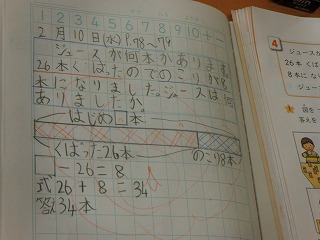 1 2 3 4 5 6 7 8 9 10 + −
2月10日(水) P.78〜79
ジュースが何本かあります。
26本くばったのでのこりが8
本になりました。ジュースは何
本ありましたか。
はじめ□本
くばった26本 のこり8本
□−26=8
式 26+8=34
答え 34本
4
ジュースが
26本 くば
8本に な